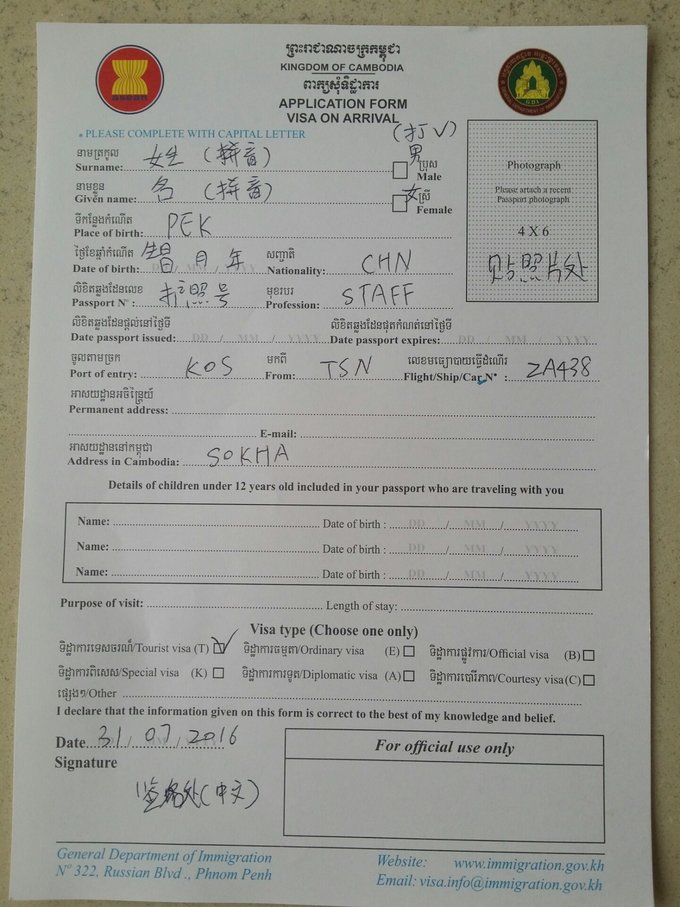 ព្រះរាជាណាចក្រកម្ពុជា
KINGDOM OF CAMBODIA
ពាក្យសុំទិដ្ឋាការ
APPLICATION FORM
VISA ON ARRIVAL
* PLEASE COMPLETE WITH CAPITAL LETTER
(打√)
នាមត្រកូល
Surname: 姓 (拼音)
男 ប្រុស
Male
នាមខ្លួន
Given name: 名 (拼音)
女 ស្រី
Female
Photograph
Please attach a recent
Passport photograph
4 X 6
贴照片处
ទីកន្លែងកំណើត
Place of birth: PEK
ថ្ងៃខែឆ្នាំកំណើត សញ្ជាតិ
Date of birth: 日 月 年 Nationality: CHN
លិខិតឆ្លងដែនលេខ មុខរបរ
Passport N°: 护照号 Profession: STAFF
លិខិតឆ្លងដែនផ្តល់នៅថ្ងៃទី លិខិតឆ្លងដែនផុតកំណត់នៅថ្ងៃទី
Date passport issued: DD / MM / YYYY Date passport expires: DD / MM / YYYY
ចូលតាមច្រក មកពី លេខមធ្យោបាយធ្វើដំណើរ
Port of entry: KOS From: TSN Flight/Ship/Car N° : ZA438
អាសយដ្ឋានអចិន្ត្រៃយ៍
Permanent address:
E-mail:
អាសយដ្ឋាននៅកម្ពុជា
Address in Cambodia: SOKHA
Details of children under 12 years old included in your passport who are traveling with you
Name: Date of birth : DD / MM / YYYY
Name: Date of birth : DD / MM / YYYY
Name: Date of birth : DD / MM / YYYY
Purpose of visit: Length of stay:
Visa type (Choose one only)
ទិដ្ឋាការទេសចរណ៍/Tourist visa (T) ✓ ទិដ្ឋាការធម្មតា/Ordinary visa (E) ទិដ្ឋាការផ្លូវការ/Official visa (B)
ទិដ្ឋាការពិសេស/Special visa (K) ទិដ្ឋាការការទូត/Diplomatic visa (A) ទិដ្ឋាការបារើភាព/Courtesy visa(C)
ផ្សេងៗ/Other
I declare that the information given on this form is correct to the best of my knowledge and belief.
Date 31 / 07 / 2016
For official use only
Signature
签名处(中文)
General Department of Immigration
N° 322, Russian Blvd ., Phnom Penh
Website: www.immigration.gov.kh
Email: visa.info@immigration.gov.kh